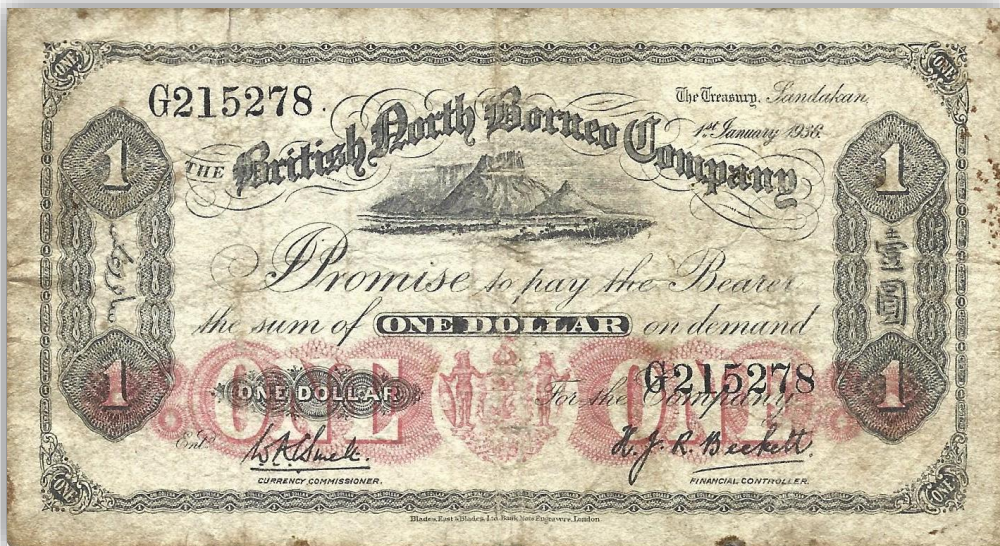 G215278.
The Treasury, Sandakan,
1st January 1936.
THE British North Borneo Company
1
1
I Promise to pay the Bearer
the sum of ONE DOLLAR on demand
ONE
ONE
G215278
ONE DOLLAR
For the Company
1
1
Entd.
H. J. R. Beckett.
CURRENCY COMMISSIONER.
FINANCIAL CONTROLLER.
ONE
ONE
ONE
ONE
Blades, East & Blades, Ltd. Bank Note Engravers, London.